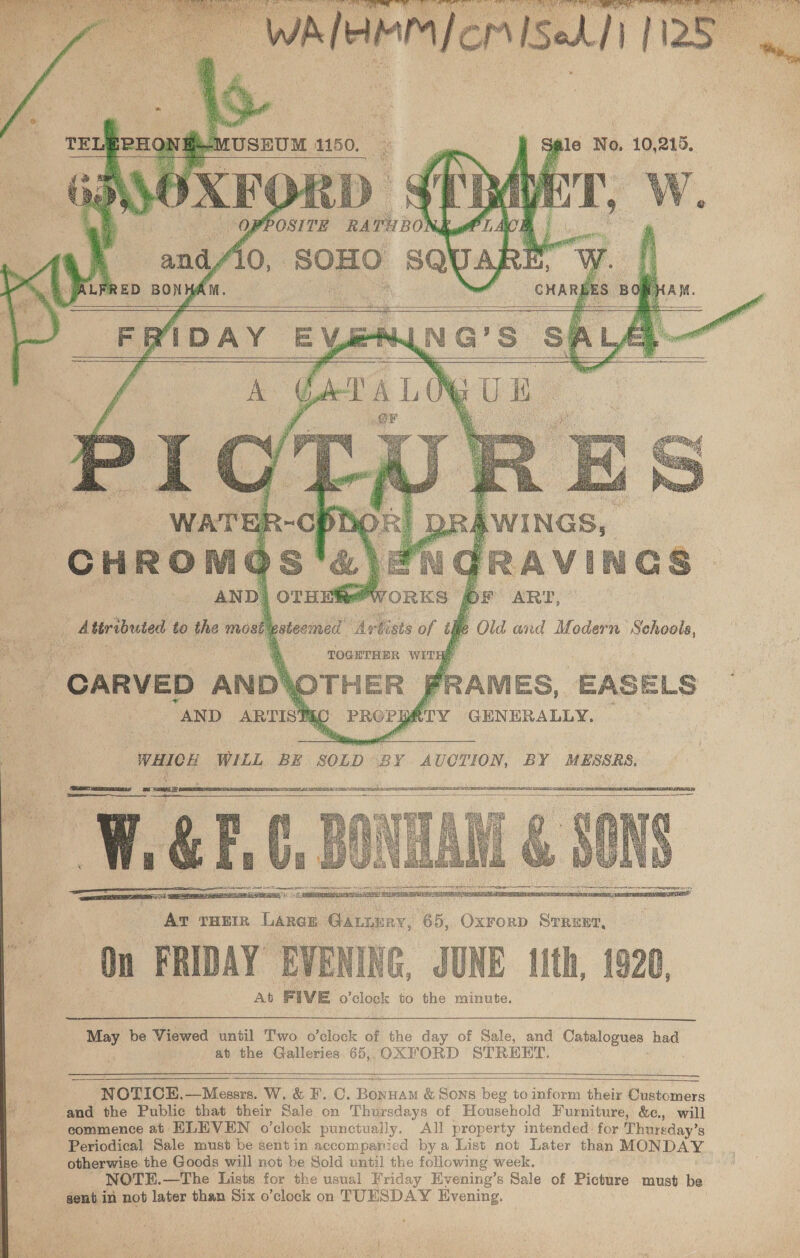 WA/HMM/CM/Sal/1/125
TELEPHONE—MUSEUM 1150. Sale No. 10,215.
65, OXFORD STREET, W.
OPPOSITE RATHBONE PLACE,
and 10, SOHO SQUARE, W.
ALFRED BONHAM. CHARLES BONHAM.
FRIDAY EVENING'S SALE
A CATALOGUE
OF
PICTURES
WATER-COLOR DRAWINGS,
CHROMOS & ENGRAVINGS
AND OTHER WORKS OF ART,
Attributed to the most esteemed Artists of the Old and Modern Schools,
TOGETHER WITH
CARVED AND OTHER FRAMES, EASELS
AND ARTISTIC PROPERTY GENERALLY.
WHICH WILL BE SOLD BY AUCTION, BY MESSRS.
W. & F. C. BONHAM & SONS
AT THEIR LARGE GALLERY, 65, OXFORD STREET,
On FRIDAY EVENING, JUNE 11th, 1920,
At FIVE o'clock to the minute.
May be Viewed until Two o'clock of the day of Sale, and Catalogues had
at the Galleries 65, OXFORD STREET.
NOTICE.—Messrs. W. & F. C. BONHAM & SONS beg to inform their Customers
and the Public that their Sale on Thursdays of Household Furniture, &c., will
commence at ELEVEN o'clock punctually. All property intended for Thursday's
Periodical Sale must be sent in accompanied by a List not Later than MONDAY
otherwise the Goods will not be Sold until the following week.
NOTE.—The Lists for the usual Friday Evening's Sale of Picture must be
sent in not later than Six o'clock on TUESDAY Evening.